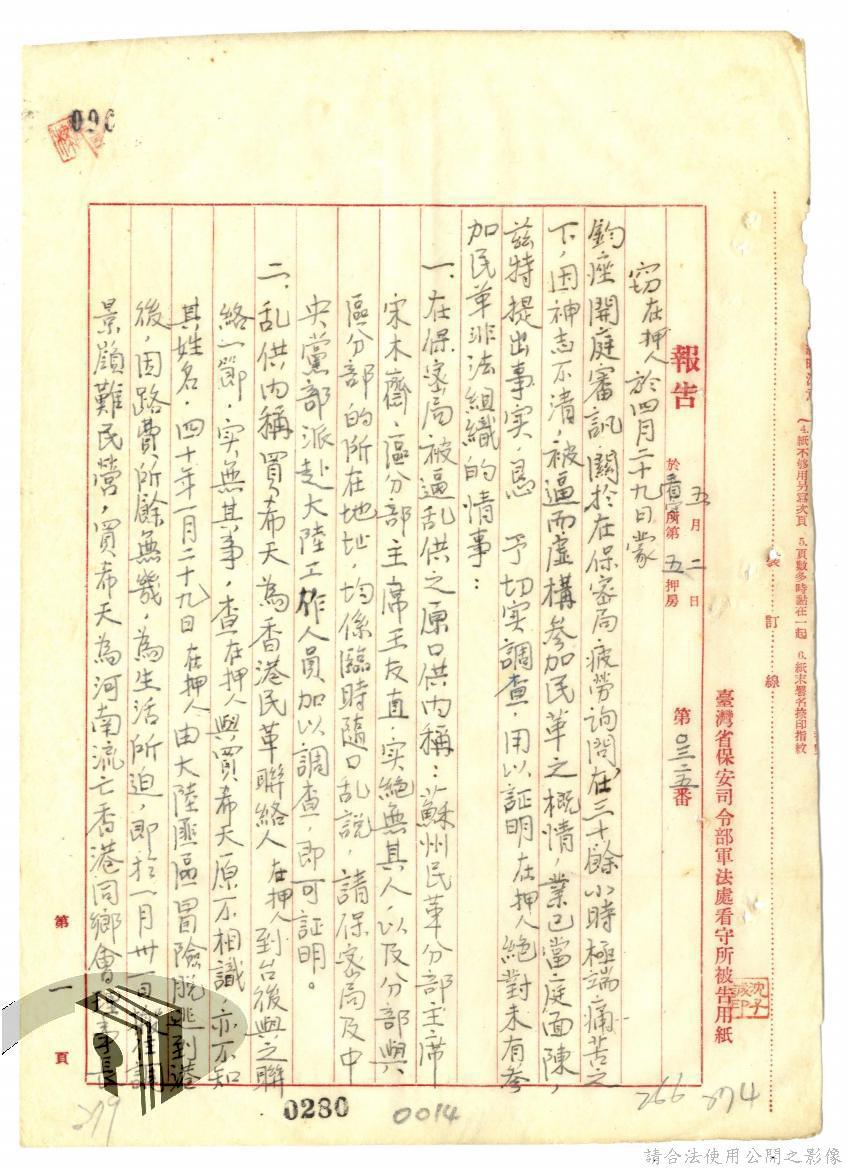 臺灣省保安司令部軍法處看守所被告用紙
(4.紙不够用另寫次頁 5.頁數多時黏在一起 6.紙末署名捺印指紋
裝訂線
報告
五月二日
於看守所第五押房
第〇三二五番
竊在押人於四月二十九日蒙
鈞座開庭審訊關於在保密局疲勞詢問在三十餘小時極端痛苦之
下,因神志不清,被逼而虛構參加民革之概情,業已當庭面陳,
茲特提出事實,懇 予切实調查,用以証明在押人絕對未有參
加民革非法組織的情事:
一、在保密局被逼乱供之原口供內稱:蘇州民革分部主席
宋木齋,區分部主席王友直,实絕無其人,以及分部與
區分部的所在地址,均係臨時隨口乱說,請保密局及中
央黨部派赴大陸工作人員加以調查,即可証明。
二、乱供內稱買希天為香港民革聯絡人在押人到台後與之聯
絡一節,实無其事,查在押人與買希天原不相識,亦不知
其姓名,四十年一月二十九日在押人由大陸匪區冒險脫逃到港
後,因路費所餘無幾,為生活所迫,即於一月卅一日前往調
景嶺難民營,買希天為河南流亡香港同鄉會理事長
第一頁
090
沈子誠印
0280
0014
266
274
279
請合法使用公開之影像